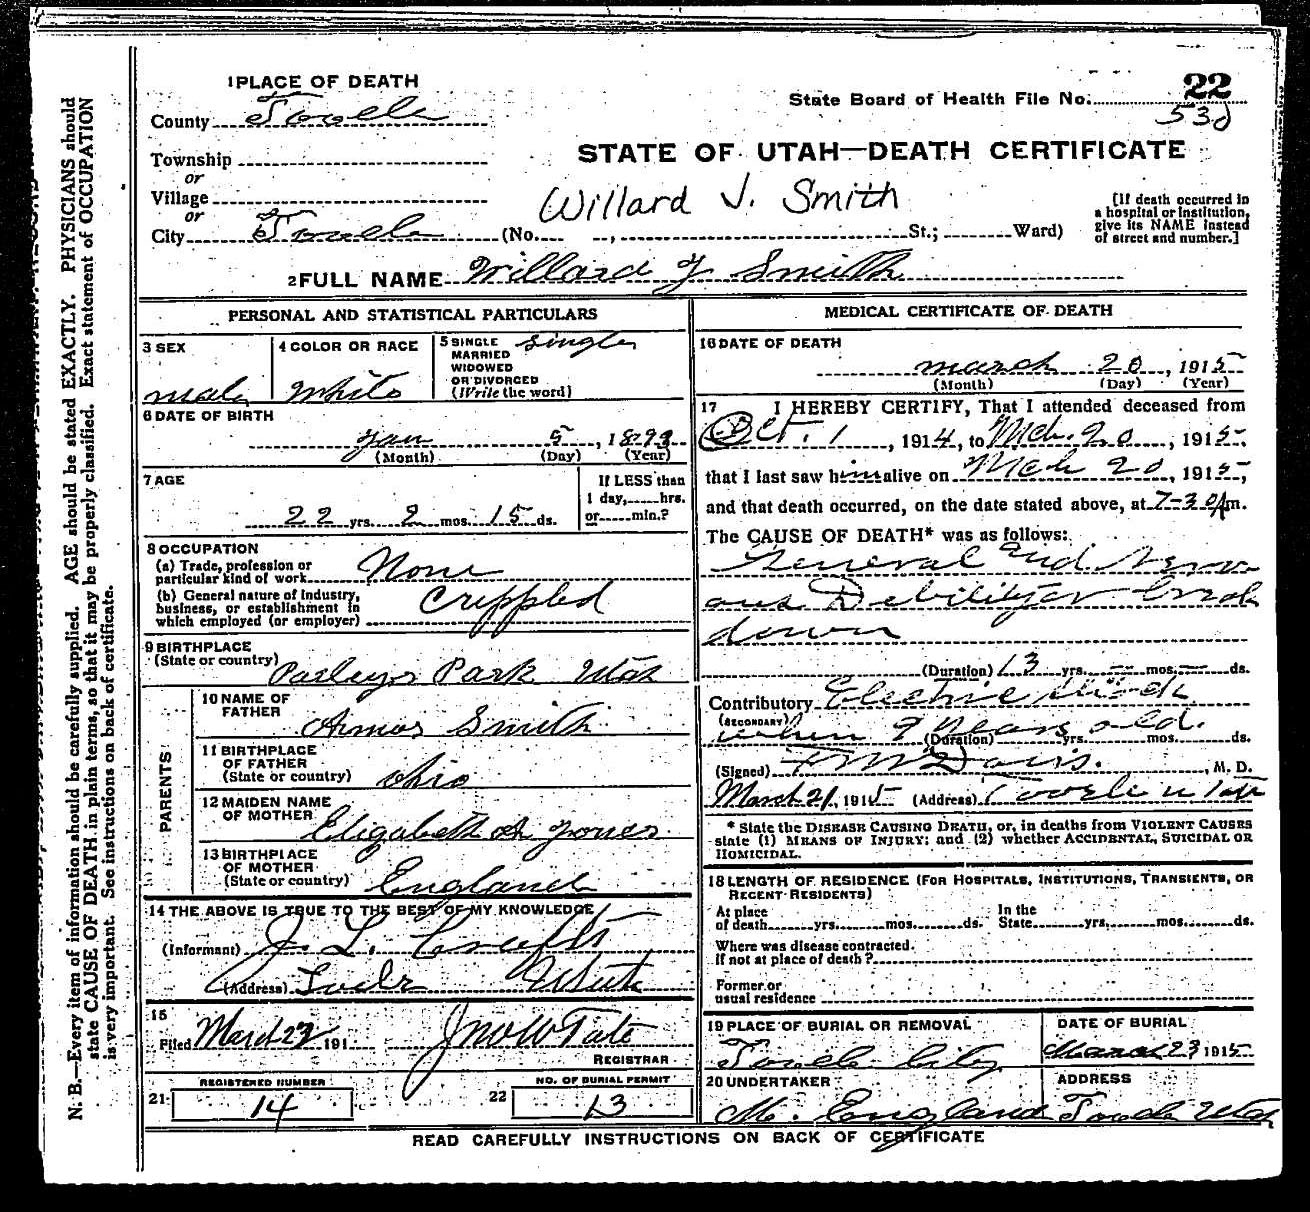 1 PLACE OF DEATH
County Tooele
Township
or
Village
or
City Tooele (No. , St.; Ward)
State Board of Health File No. 22
530
STATE OF UTAH—DEATH CERTIFICATE
Willard J. Smith
[If death occurred in
a hospital or institution,
give its NAME instead
of street and number.]
2 FULL NAME Willard J Smith
PERSONAL AND STATISTICAL PARTICULARS
3 SEX
male
4 COLOR OR RACE
White
5 SINGLE
MARRIED
WIDOWED
OR DIVORCED
(Write the word)
single
6 DATE OF BIRTH
Jan 5, 1893
(Month) (Day) (Year)
7 AGE
22 yrs. 2 mos. 15 ds.
If LESS than
1 day, hrs.
or min.?
8 OCCUPATION
(a) Trade, profession or
particular kind of work None
(b) General nature of industry,
business, or establishment in
which employed (or employer)
Crippled
9 BIRTHPLACE
(State or country) Parleys Park Utah
PARENTS
10 NAME OF
FATHER
Amos Smith
11 BIRTHPLACE
OF FATHER
(State or country) Ohio
12 MAIDEN NAME
OF MOTHER
Elizabeth Jones
13 BIRTHPLACE
OF MOTHER
(State or country) England
14 THE ABOVE IS TRUE TO THE BEST OF MY KNOWLEDGE
(Informant) J. L.
(Address) Utah
15
Filed March 23 191
Jno W Tate
REGISTRAR
21 REGISTERED NUMBER
14
22 NO. OF BURIAL PERMIT
13
MEDICAL CERTIFICATE OF DEATH
16 DATE OF DEATH
march 20, 1915
(Month) (Day) (Year)
17 I HEREBY CERTIFY, That I attended deceased from
Oct. 1, 1914, to Mch. 20, 1915,
that I last saw him alive on Mch 20, 1915,
and that death occurred, on the date stated above, at 7-30 Am.
The CAUSE OF DEATH* was as follows:
General and Nerv-
ous Debility or break
down
(Duration) 13 yrs. — mos. — ds.
Contributory Electric shock
(SECONDARY) when 9 years old.
(Duration) yrs. mos. ds.
(Signed) Davis. , M. D.
March 21, 1915 (Address) Tooele Utah
* State the DISEASE CAUSING DEATH, or, in deaths from VIOLENT CAUSES
state (1) MEANS OF INJURY; and (2) whether ACCIDENTAL, SUICIDAL OR
HOMICIDAL.
18 LENGTH OF RESIDENCE (FOR HOSPITALS, INSTITUTIONS, TRANSIENTS, OR
RECENT RESIDENTS)
At place
of death yrs. mos. ds.
In the
State yrs. mos. ds.
Where was disease contracted.
If not at place of death?
Former or
usual residence
19 PLACE OF BURIAL OR REMOVAL
Tooele City
DATE OF BURIAL
March 23 1915
20 UNDERTAKER
M. England
ADDRESS
Tooele Utah
READ CAREFULLY INSTRUCTIONS ON BACK OF CERTIFICATE
N. B.—Every item of information should be carefully supplied. AGE should be stated EXACTLY. PHYSICIANS should
state CAUSE OF DEATH in plain terms, so that it may be properly classified. Exact statement of OCCUPATION
is very important. See instructions on back of certificate.